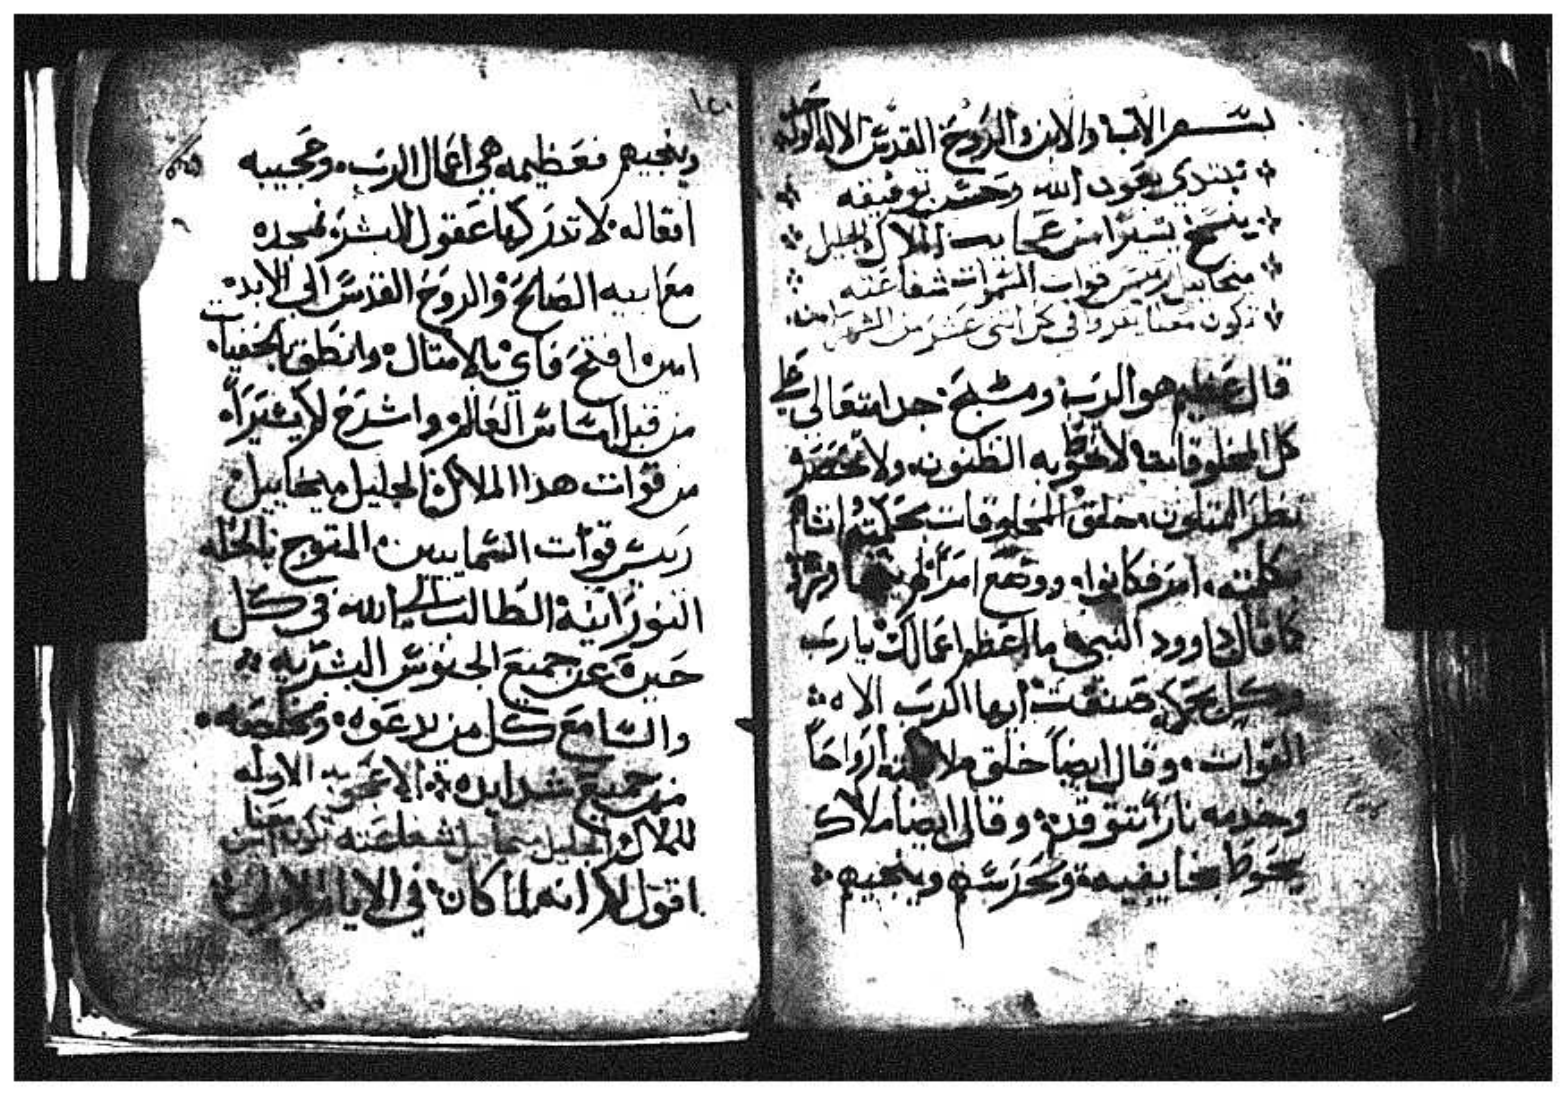 بسم الاب والابن والروح القدس الاله الواحد
نبتدي بعون الله وحسن توفيقه
ينسخ يسيرا من عجايب الملاك الجليل
ميخاييل رييس قوات السموات شفاعته
تكون معنا يقروا في كل اثنى عشر من الشهر امين
قال عظيم هو الرب ومسبح جدا متعالى على
كل المخلوقات لا تحويه الظنون ولا تحصره
نظر المتاملون خلق المخلوقات بحكمته
كلمته امر فكانوا ووضع امرا
كما قال داوود النبي ما اعظم اعمالك يارب
وكل بحكمه صنعت ايها الرب الاه
القوات وقال ايضا خلق ملايكته ارواحا
وخدمه نارا تتوقد وقال ايضا ملاك
يحوط بخايفيه وتحرسهم وينجيهم
وينجيهم فعظيمه هي اعمال الرب وعجيبه
افعاله لا تدركها عقول البشر نمجده
مع ابيه الصالح والروح القدس الى الابد
امين افتح فاي بالامثال وانطق بالخفيات
من قبل اساس العالم واشرح لكم يسيرا
من قوات هذا الملاك الجليل ميخاييل
رييس قوات السماييين المتوج بالحله
النورانية الطالب الى الله في كل
حين عن جميع الجنوس البشريه
والسامع كل من يدعوه ومخلصه
من جميع شدايده الاعجوبه الاوله
للملاك الجليل ميخاييل شفاعته تكون معنا امين
اقول لكم انه لما كان في الايام الاولى